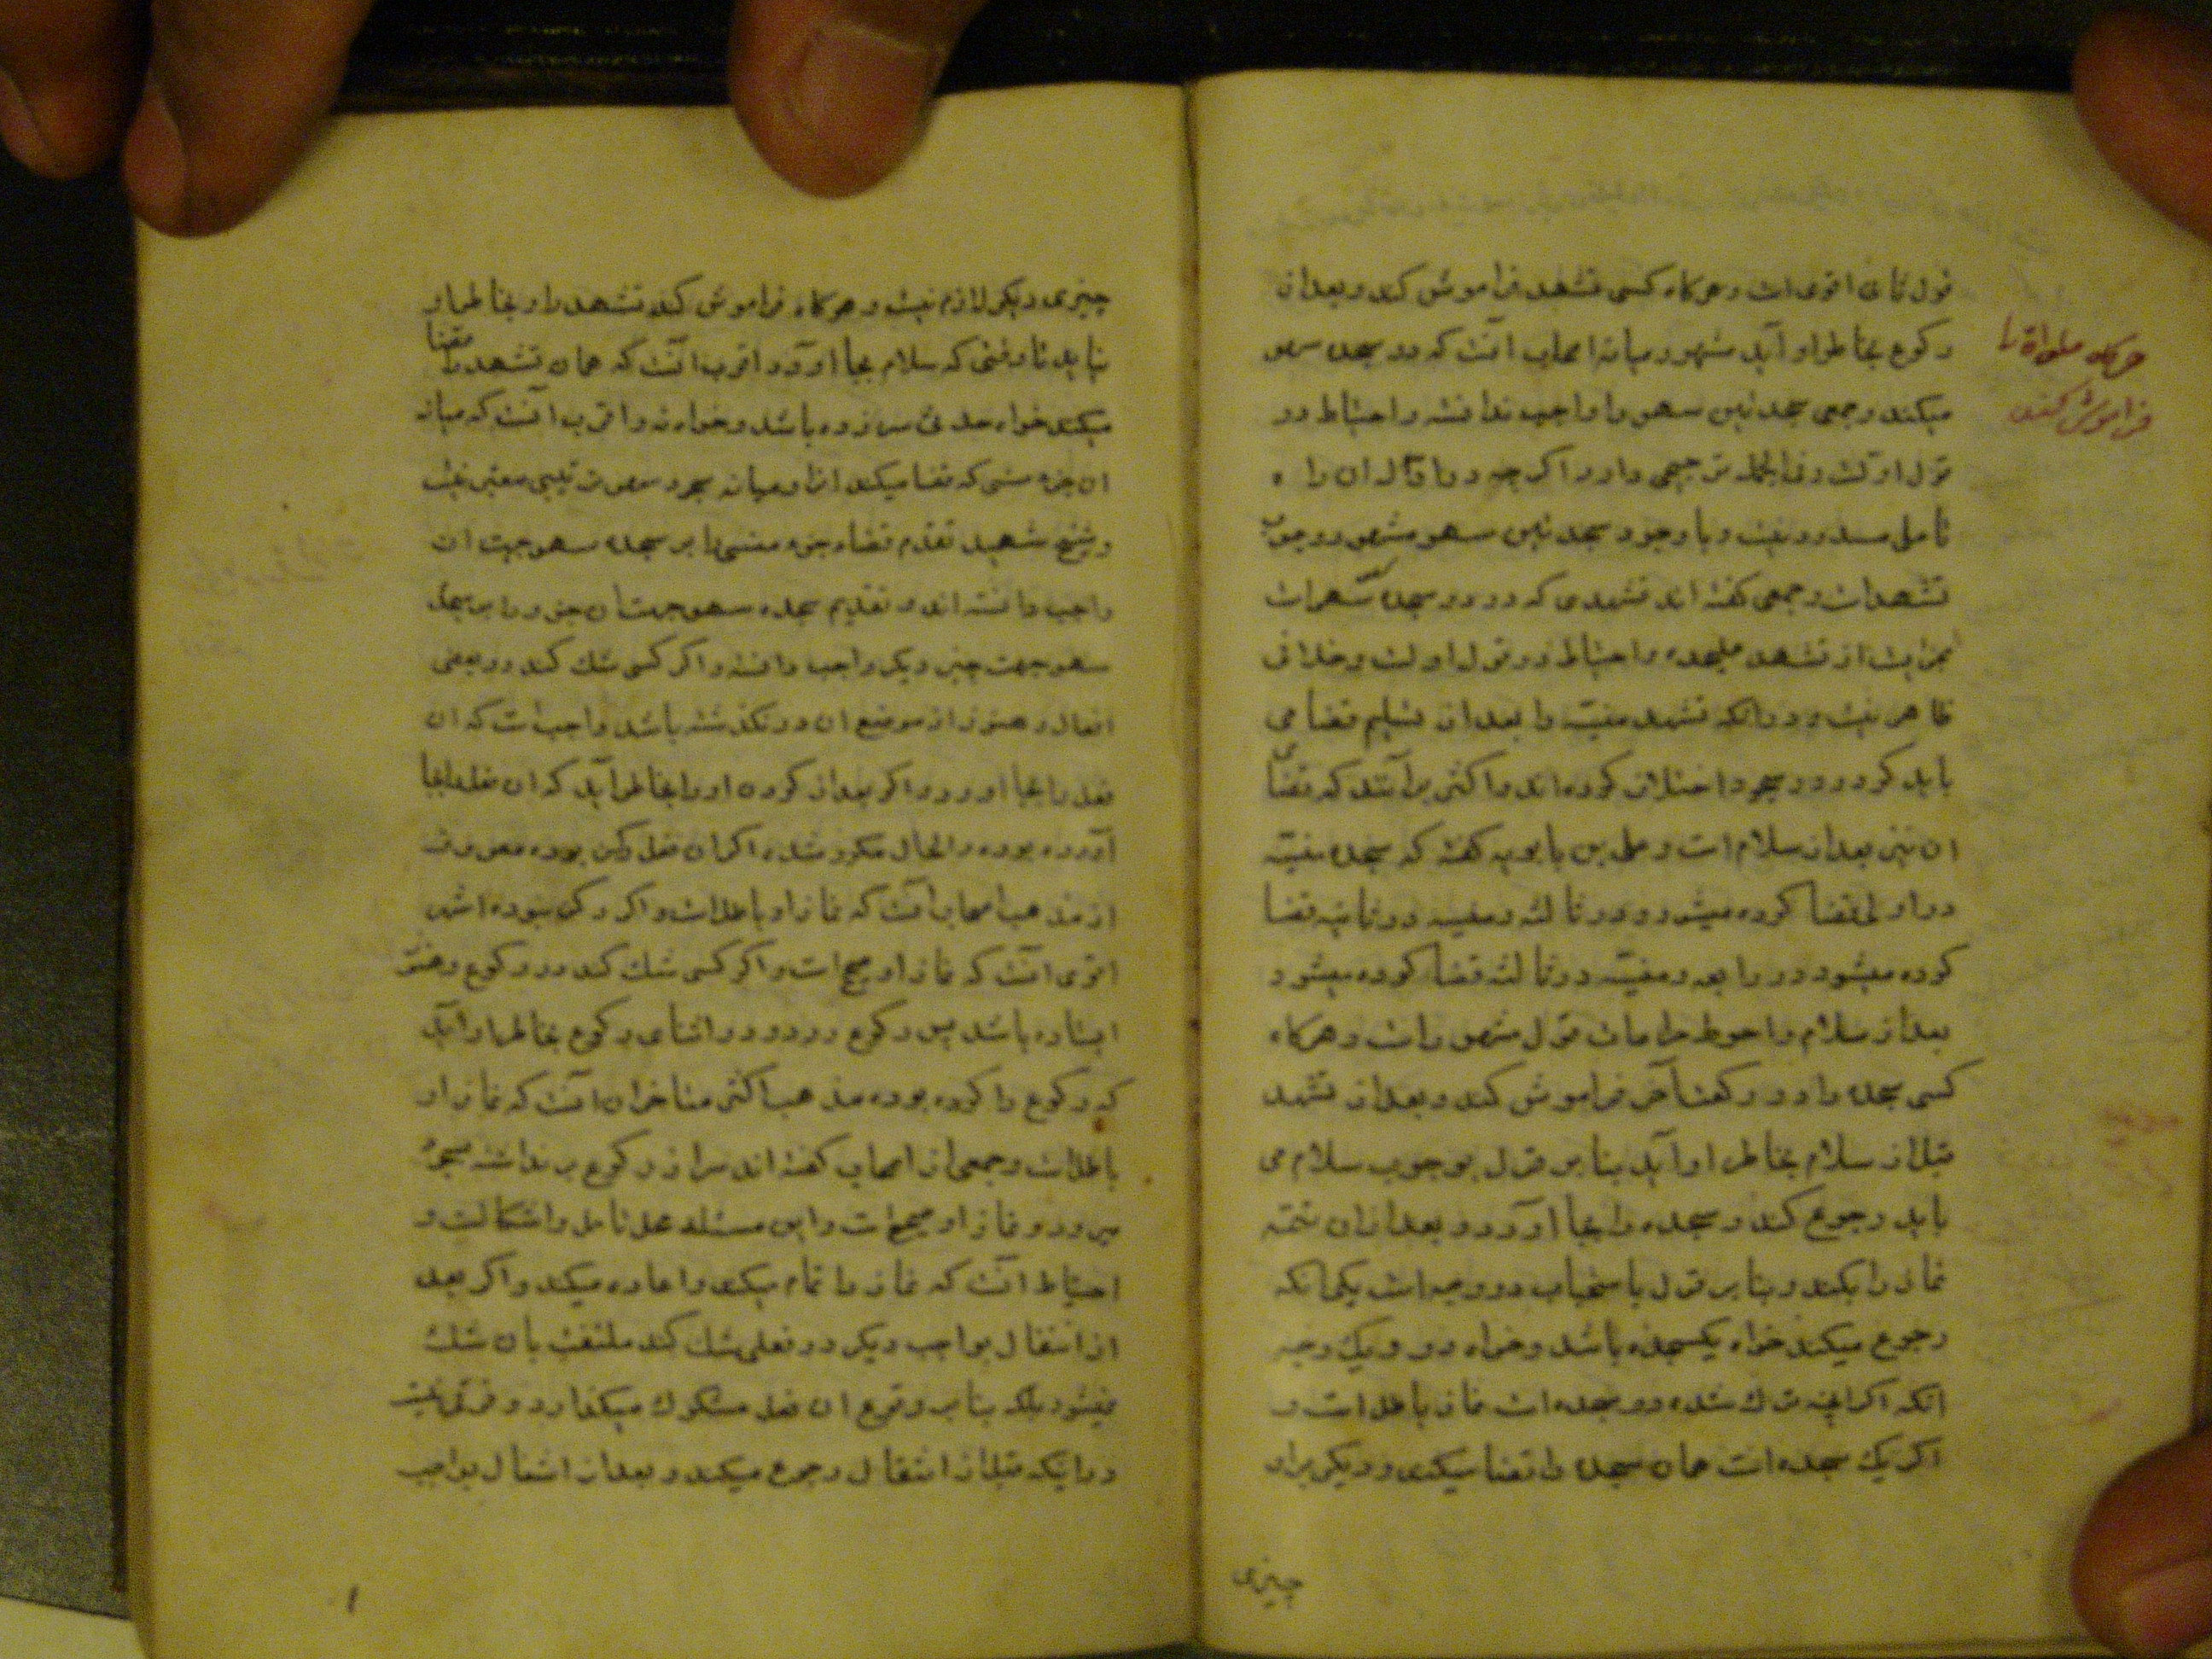 قول ثانی اقوی است و هرگاه کسی تشهد فراموش کند و بعد از
رکوع بخاطر او آید مشهور میانه اصحاب آنست که دو سجده سهو
میکند و جمعی سجدتین سهو را واجب ندانسته و احتیاط در
قول اولست و فی الجمله ترجیحی دارد اگر چه
تاملی نیست و با وجود سجدتین سهو مشهور وجوب
تشهد است و جمعی گفته اند تشهدی که در دو سجده سهو است
مجزیست از تشهد علیحده و احتیاط در قول اولست و خلافی
ظاهر نیست در آنکه تشهد منسیه را بعد از تسلیم قضا می
باید کرد و در سجود اختلاف کرده اند و اکثر بر آنند که قضای
آن نیز بعد از سلام است و علی بن بابویه گفته که سجده منسیه
در اولی قضا کرده میشود در ثالثه و منسیه در ثانیه قضا
کرده میشود در رابعه و منسیه در ثالثه قضا کرده میشود
بعد از سلام و احوط مراعات قول مشهور است و هرگاه
کسی سجده را در رکعت آخر فراموش کند و بعد از تشهد
قبل از سلام بخاطر او آید بنا بر قول بوجوب سلام می
باید رجوع کند و سجده را بجا آورد و بعد از آن تتمه
نماز را بکند و بنا بر قول باستحباب دو وجه است یکی آنکه
رجوع میکند خواه یکسجده باشد و خواه دو و یک وجه
آنکه اگر آنچه ترک شده دو سجده است نماز باطل است و
اگر یک سجده است همان سجده را قضا میکند و دیگر بر او
چیزی
هرگاه صلوة را
فراموش کند
چیزی دیگر لازم نیست و هرگاه فراموش کند تشهد را و بخاطر او
نیاید تا وقتی که سلام بجا آورد اقرب آنست که همان تشهد را قضا
میکند خواه حدثی سر زده باشد و خواه نه و اقرب آنست که میانه
آن جزء منسی که قضا میکند آنرا و میانه سجود سهو ترتیبی معتبر نیست
و شیخ شهید تقدم قضاء جزء منسی را بر سجده سهو جهت آن
واجب دانسته اند و تقدیم سجده سهو جهت آن جزو را بر سجده
سهو جهت چیز دیگر واجب دانسته و اگر کسی شک کند در بعضی
افعال و هنوز از موضع آن در نگذشته باشد واجب است که آن
فعل را بجا آورد و اگر بعد از کردن او را بخاطر آید که آن فعل را بجا
آورده بوده و الحال مکرر شده اگر آن فعل رکن بوده معروف
از مذهب اصحاب آنست که نماز او باطل است و اگر رکن نبوده اشهر
اقوی آنست که نماز او صحیح است و اگر کسی شک کند در رکوع و هنوز
ایستاده باشد پس رکوع رود و در اثنای رکوع بخاطر او آید
که رکوع را کرده بوده مذهب اکثر متاخران آنست که نماز او
باطل است و جمعی از اصحاب گفته اند سر از رکوع برنداشته بسجود
میرود و نماز او صحیح است و این مسئله محل تامل و اشکالست و
احتیاط آنست که نماز را تمام میکند و اعاده میکند و اگر بعد
از انتقال بواجب دیگر در فعلی شک کند ملتفت بان شک
نمیشود بلکه بنا بر وقوع آن فعل مشکوک میگذارد و فرقی نیست
در اینکه قبل از انتقال رجوع میکند و بعد از انتقال بواجب